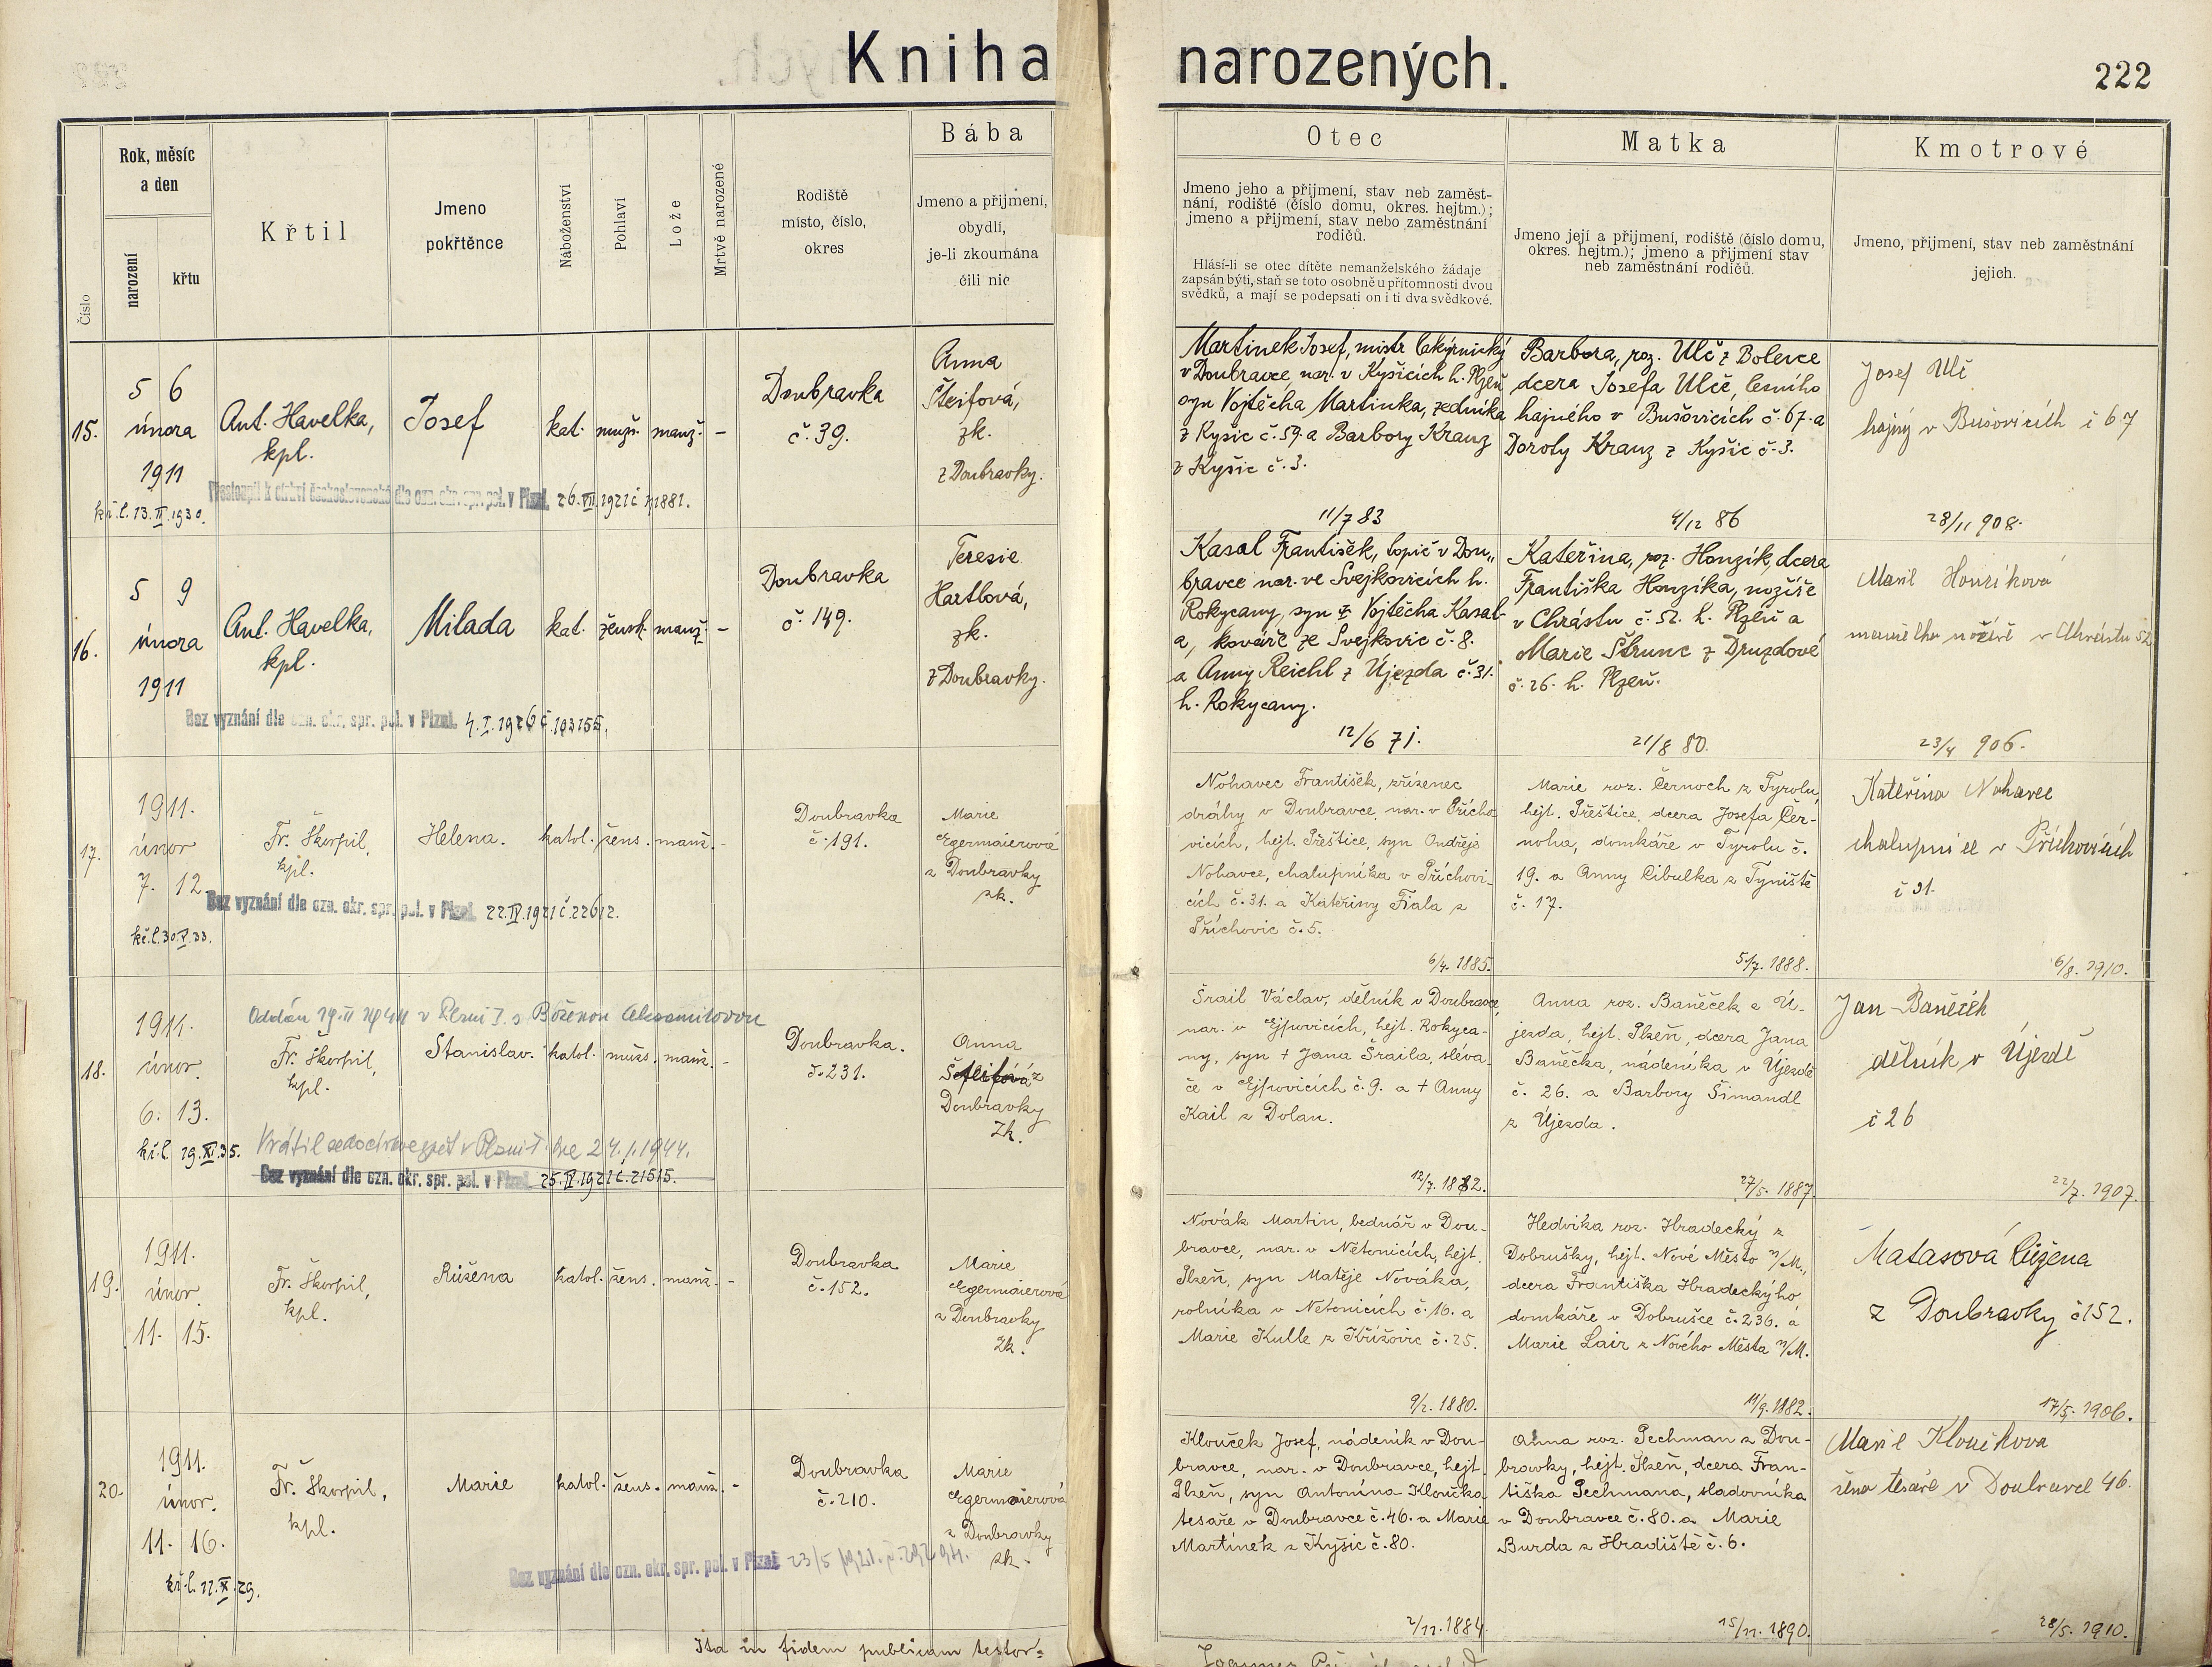 Kniha narozených.
222
Číslo
Rok, měsíc
a den
narození
křtu
Křtil
Jmeno
pokřtěnce
Náboženství
Pohlaví
Lože
Mrtvě narozené
Rodiště
místo, číslo,
okres
Bába
Jmeno a přijmení,
obydlí,
je-li zkoumána
čili nic
Otec
Jmeno jeho a přijmení, stav neb zaměst-
nání, rodiště (číslo domu, okres. hejtm.);
jmeno a přijmení, stav nebo zaměstnání
rodičů.
Hlásí-li se otec dítěte nemanželského žádaje
zapsán býti, staň se toto osobně u přítomnosti dvou
svědků, a mají se podepsati on i ti dva svědkové.
Matka
Jmeno její a přijmení, rodiště (číslo domu,
okres. hejtm.); jmeno a přijmení stav
neb zaměstnání rodičů.
Kmotrové
Jmeno, přijmení, stav neb zaměstnání
jejich.
15.
5 6
února
1911
kř.l. 13.II.1930.
Ant. Havelka,
kpl.
Josef
kat.
mužs.
manž.
-
Přestoupil k církvi československé dle ozn. okr. spr. pol. v Plzni. 26.VII.1921 č 71881.
Doubravka
č. 39.
Anna
Šteifová,
zk.
z Doubravky.
Martinek Josef, mistr lakýrnický
v Doubravce, nar. v Kyšicích h. Plzeň
syn Vojtěcha Martinka, zedníka
z Kyšic č. 59. a Barbory Kranz
z Kyšic č. 3.
11/7 83
Barbora, roz. Ulč z Bolevce
dcera Josefa Ulče, lesního
hajného v Bušovicích č. 67. a
Doroty Kranz z Kyšic č. 3.
4/12 86
Josef Ulč
hajný v Bušovicích č 67
28/11 908.
16.
5 9
února
1911
Ant. Havelka,
kpl.
Milada
kat.
žensk.
manž.
-
Bez vyznání dle ozn. okr. spr. pol. v Plzni. 4.I.1926 č. 103155.
Doubravka
č. 149.
Teresie
Hartlová,
zk.
z Doubravky.
Kasal František, topič v Dou„
bravce nar. ve Svejkovicích h.
Rokycany, syn Vojtěcha Kasal-
a, kováře ze Svejkovic č. 8.
a Anny Reichl z Újezda č. 31.
h. Rokycany.
12/6 71.
Kateřina, roz. Honzík, dcera
Františka Honzíka, nožíře
v Chrástu č. 52. h. Plzeň a
Marie Štrunc z Druzdové
č. 26. h. Plzeň.
21/8 80.
Marie Honzíková
manželka nožíře v Chrástu 52
23/4 906.
17.
1911.
únor
7. 12
kř.l. 30.V.33.
Fr. Škorpil,
kpl.
Helena.
katol.
žens.
manž.
-
Bez vyznání dle ozn. okr. spr. pol. v Plzni. 22.IV.1921 č. 22612.
Doubravka
č. 191.
Marie
Egermaierová
z Doubravky
zk.
Nohavec František, zřízenec
dráhy v Doubravce, nar. v Přícho
vicích, hejt. Přeštice, syn Ondřeje
Nohavce, chalupníka v Příchovi-
cích č. 31. a Kateřiny Fiala z
Příchovic č. 5.
6/4. 1885.
Marie roz. Černoch z Tyrolu,
hejt. Přeštice, dcera Josefa Čer-
nocha, domkáře v Tyrolu č.
19. a Anny Cibulka z Tyniště
č. 17.
5/7. 1888.
Kateřina Nohavec
chalupnice v Příchovicích
č 31.
6/8. 1910.
18.
1911.
únor.
6. 13.
kř.l. 19.XI.35.
Oddán 19.II 1944 v Plzni I. s Boženou Aksamitovou
Fr. Škorpil,
kpl.
Stanislav.
katol.
mužs.
manž.
-
Vrátil se do církve zpět v Plzni I. dne 24.1.1944.
Bez vyznání dle ozn. okr. spr. pol. v Plzni. 25.IV.1921 č. 21515.
Doubravka.
č. 231.
Anna
Šteifová z
Doubravky
Zk.
Šrail Václav, dělník v Doubravce,
nar. v Ejpovicích, hejt. Rokyca-
ny, syn † Jana Šraila, sléva-
če v Ejpovicích č. 9. a † Anny
Kail z Dolan.
12/7. 1882.
Anna roz. Baněček z Ú-
jezda, hejt. Plzeň, dcera Jana
Baněčka, nádeníka v Újezdě
č. 26. a Barbory Šimandl
z Újezda.
27/5. 1887.
Jan Baněček
dělník v Újezdě
č 26
22/7. 1907.
19.
1911.
únor.
11. 15.
Fr. Škorpil,
kpl.
Růžena
katol.
žens.
manž.
-
Doubravka
č. 152.
Marie
Egermaierová
z Doubravky
Zk.
Novák Martin, bednář v Dou-
bravce, nar. v Netonicích, hejt.
Plzeň, syn Matěje Nováka,
rolníka v Netonicích č. 16. a
Marie Kulle z Křížovic č. 25.
9/2. 1880.
Hedvika roz. Hradecký z
Dobrušky, hejt. Nové Město n/M.,
dcera Františka Hradeckýho
domkáře v Dobrušce č. 236. a
Marie Lair z Nového Města n/M.
11/9. 1882.
Matasová Růžena
z Doubravky č 152.
17/5. 1906.
20.
1911.
únor.
11. 16.
kř.l. 22.X.29.
Fr. Škorpil,
kpl.
Marie
katol.
žens.
manž.
-
Bez vyznání dle ozn. okr. spr. pol. v Plzni 23/5 1921.
Doubravka
č. 210.
Marie
Egermaierová
z Doubravky
zk.
Klouček Josef, nádeník v Dou-
bravce, nar. v Doubravce, hejt.
Plzeň, syn Antonína Kloučka
tesaře v Doubravce č. 46. a Marie
Martínek z Kyšic č. 80.
2/11. 1884.
Anna roz. Pechman z Dou-
bravky, hejt. Plzeň, dcera Fran-
tiška Pechmana, sladovníka
v Doubravce č. 80. a Marie
Burda z Hradiště č. 6.
15/11. 1890.
Marie Kloučková
žena tesaře v Doubravce 46.
28/5. 1910.
Ita in fidem publicam testor=